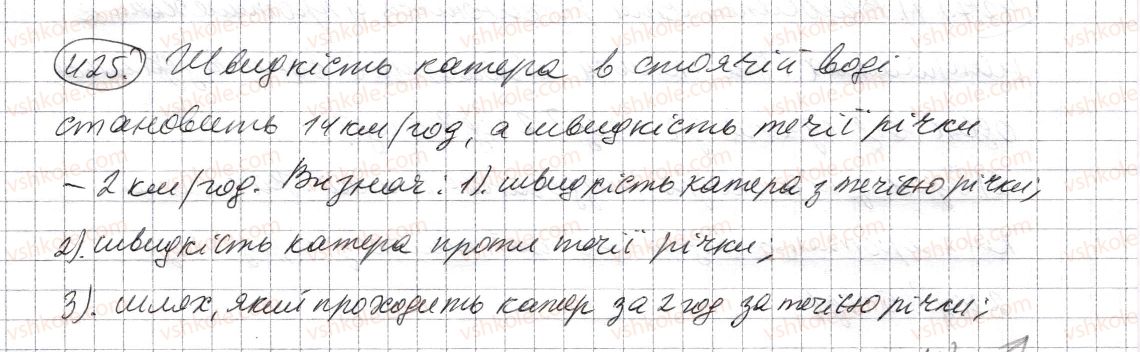 425. Швидкість катера в стоячій воді
становить 14 км/год, а швидкість течії річки
– 2 км/год. Визнач: 1). швидкість катера з течією річки;
2). швидкість катера проти течії річки;
3). шлях, який проходить катер за 2 год за течією річки;